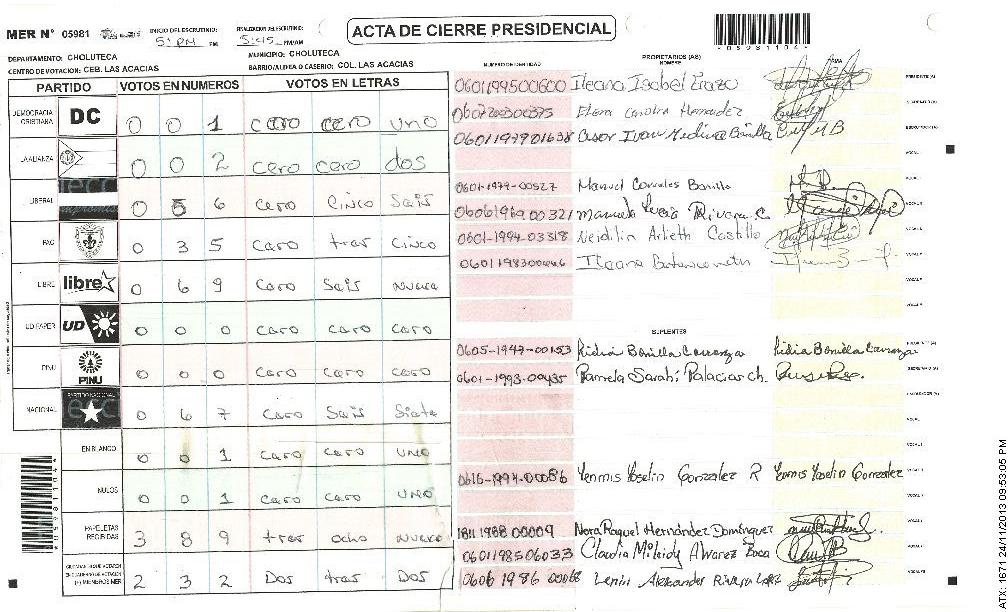 MER N° 05981
INICIO DEL ESCRUTINIO: 5: PM PM
FINALIZACION DEL ESCRUTINIO: 5:45 PM/AM
ACTA DE CIERRE PRESIDENCIAL
DEPARTAMENTO: CHOLUTECA
MUNICIPIO: CHOLUTECA
CENTRO DE VOTACION: CEB. LAS ACACIAS
BARRIO/ALDEA O CASERIO: COL. LAS ACACIAS
PARTIDO VOTOS EN NUMEROS VOTOS EN LETRAS
DEMOCRACIA CRISTIANA DC 0 0 1 cero cero uno
LA ALIANZA 0 0 2 cero cero dos
LIBERAL 0 5 6 cero cinco Sais
PAC 0 3 5 caro tras cinco
LIBRE libre 0 6 9 caro Sais nueva
UD FAPER UD 0 0 0 caro caro caro
PINU PINU 0 0 0 caro caro caro
NACIONAL PARTIDO NACIONAL 0 6 7 caro Sais Siata
EN BLANCO 0 0 1 caro caro uno
NULOS 0 0 1 caro caro uno
PAPELETAS RECIBIDAS 3 8 9 tras ocho nueva
2 3 2 Dos tras Dos
NUMERO DE IDENTIDAD
PROPIETARIOS (AS)
NOMBRE
FIRMA
0601199500600 Ileana Isabel Erazo
PRESIDENTE (A)
Elena Carolina Hernandez
SECRETARIO (A)
0601197901638 Cesar Ivan Medina Bonilla
ESCRUTADOR (A)
VOCAL
0601-1979-00527 Manuel Corrales Bonilla
0606196900321 Manuela Lucia Rivera C.
0601-1994-03318 Neidilin Arlieth Castillo
Ileana
SUPLENTES
0605-1947-00153 Lidia Bonilla Carranza Lidia Bonilla Carranza
PRESIDENTE (A)
0601-1993-00435 Pamela Sarahi Palacios ch.
SECRETARIO (A)
ESCRUTADOR (A)
VOCAL
0616-1994-00086 Yennis Yoselin Gonzalez R Yennis Yoselin Gonzalez
1811 1988 00009 Nora Raquel Hernández Domínguez
0601198506033 Claudia Milaidy Alvarez
0606 1986 00068 Lenin Alexander Rivera
ATX: 1671 24/11/2013 09:53:05 PM